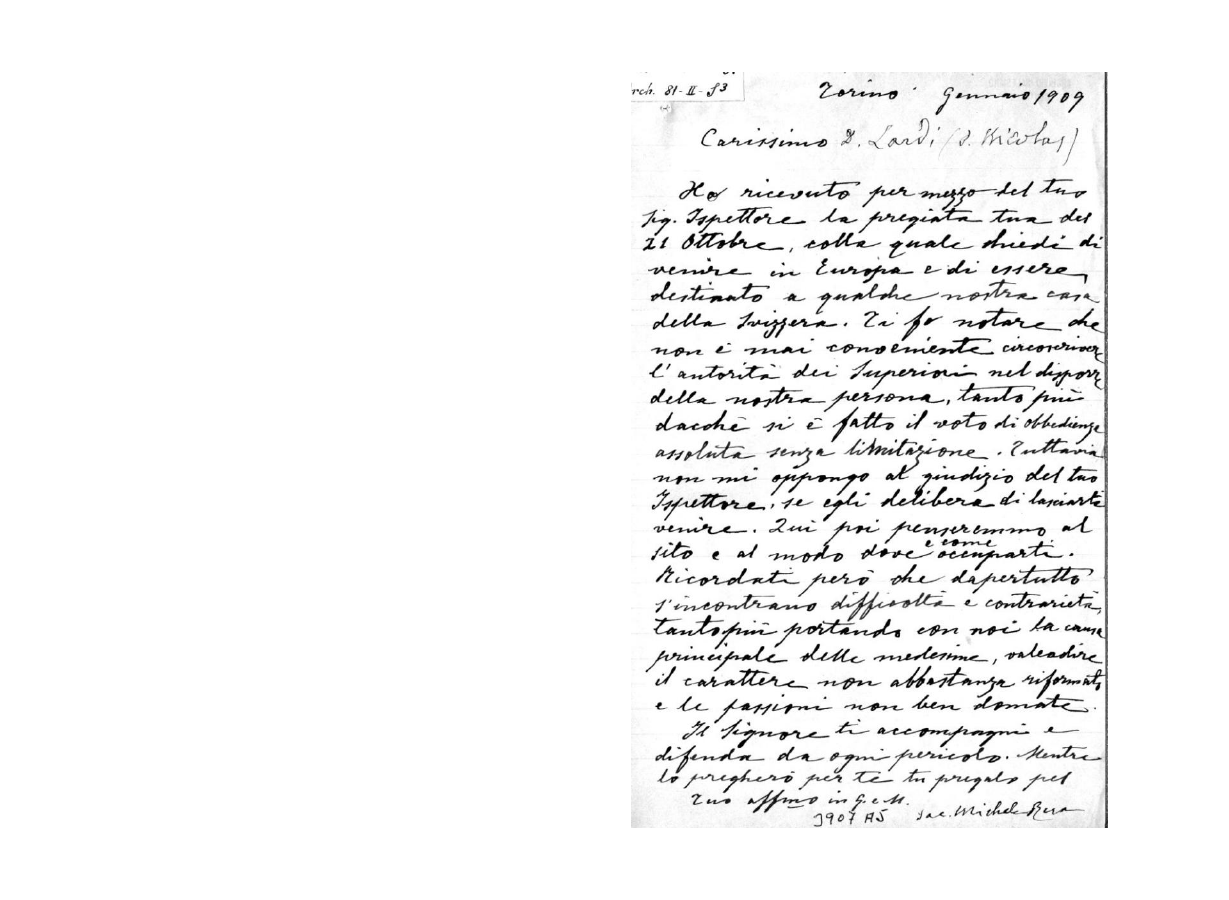 rch. 81-II-S3
Torino Gennaio 1909
Carissimo D. Lardi (S. Nicolas)
Ho ricevuto per mezzo del tuo
Sig. Ispettore la pregiata tua del
21 Ottobre, colla quale chiedi di
venire in Europa e di essere
destinato a qualche nostra casa
della Svizzera. Ti fo notare che
non è mai conveniente circoscrivere
l'autorità dei Superiori nel disporre
della nostra persona, tanto più
dacchè si è fatto il voto di obbedienza
assoluta senza limitazione. Tuttavia
non mi oppongo al giudizio del tuo
Ispettore, se egli delibera di lasciarti
venire. Qui poi penseremmo al
e come
sito e al modo dove occuparti.
Ricordati però che dapertutto
s'incontrano difficoltà e contrarietà,
tanto più portando con noi la causa
principale delle medesime, valeadire
il carattere non abbastanza riformato
e le passioni non ben domate.
Il Signore ti accompagni e
difenda da ogni pericolo. Mentre
lo pregherò per te tu pregalo pel
Tuo affmo in G. e M.
Sac. Michele Rua
3907 AS